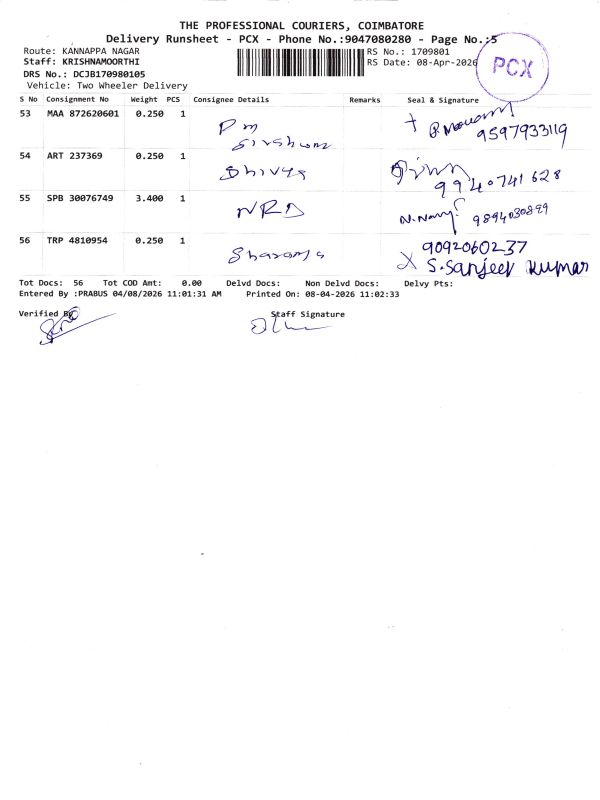 THE PROFESSIONAL COURIERS, COIMBATORE
Delivery Runsheet - PCX - Phone No.:9047080280 - Page No.:5
Route: KANNAPPA NAGAR
RS No.: 1709801
Staff: KRISHNAMOORTHI
RS Date: 08-Apr-2026
PCX
DRS No.: DCJB170980105
Vehicle: Two Wheeler Delivery
S No Consignment No Weight PCS Consignee Details Remarks Seal & Signature
53 MAA 872620601 0.250 1 Pm
9597933119
54 ART 237369 0.250 1 Dhivya
9940741628
55 SPB 30076749 3.400 1 NRD
9894030899
56 TRP 4810954 0.250 1
9092060237
S. Sanjeev Kumar
Tot Docs: 56 Tot COD Amt: 0.00 Delvd Docs: Non Delvd Docs: Delvy Pts:
Entered By :PRABUS 04/08/2026 11:01:31 AM Printed On: 08-04-2026 11:02:33
Verified By Staff Signature